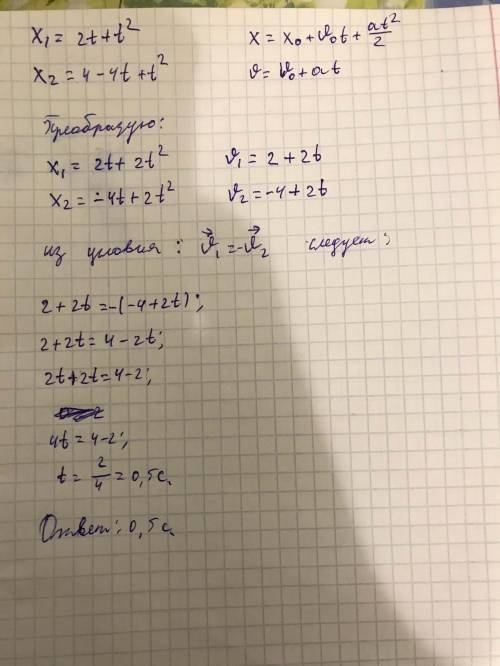 x₁ = 2t + t² x = x₀ + v₀t + at²/2
x₂ = 4 - 4t + t² v = v₀ + at
Преобразую:
x₁ = 2t + 2t² v₁ = 2 + 2t
x₂ = -4t + 2t² v₂ = -4 + 2t
из условия: v⃗₁ = -v⃗₂ следует:
2 + 2t = -(-4 + 2t);
2 + 2t = 4 - 2t;
2t + 2t = 4 - 2;
4t = 4 - 2;
t = 2/4 = 0,5с.
Ответ: 0,5с.